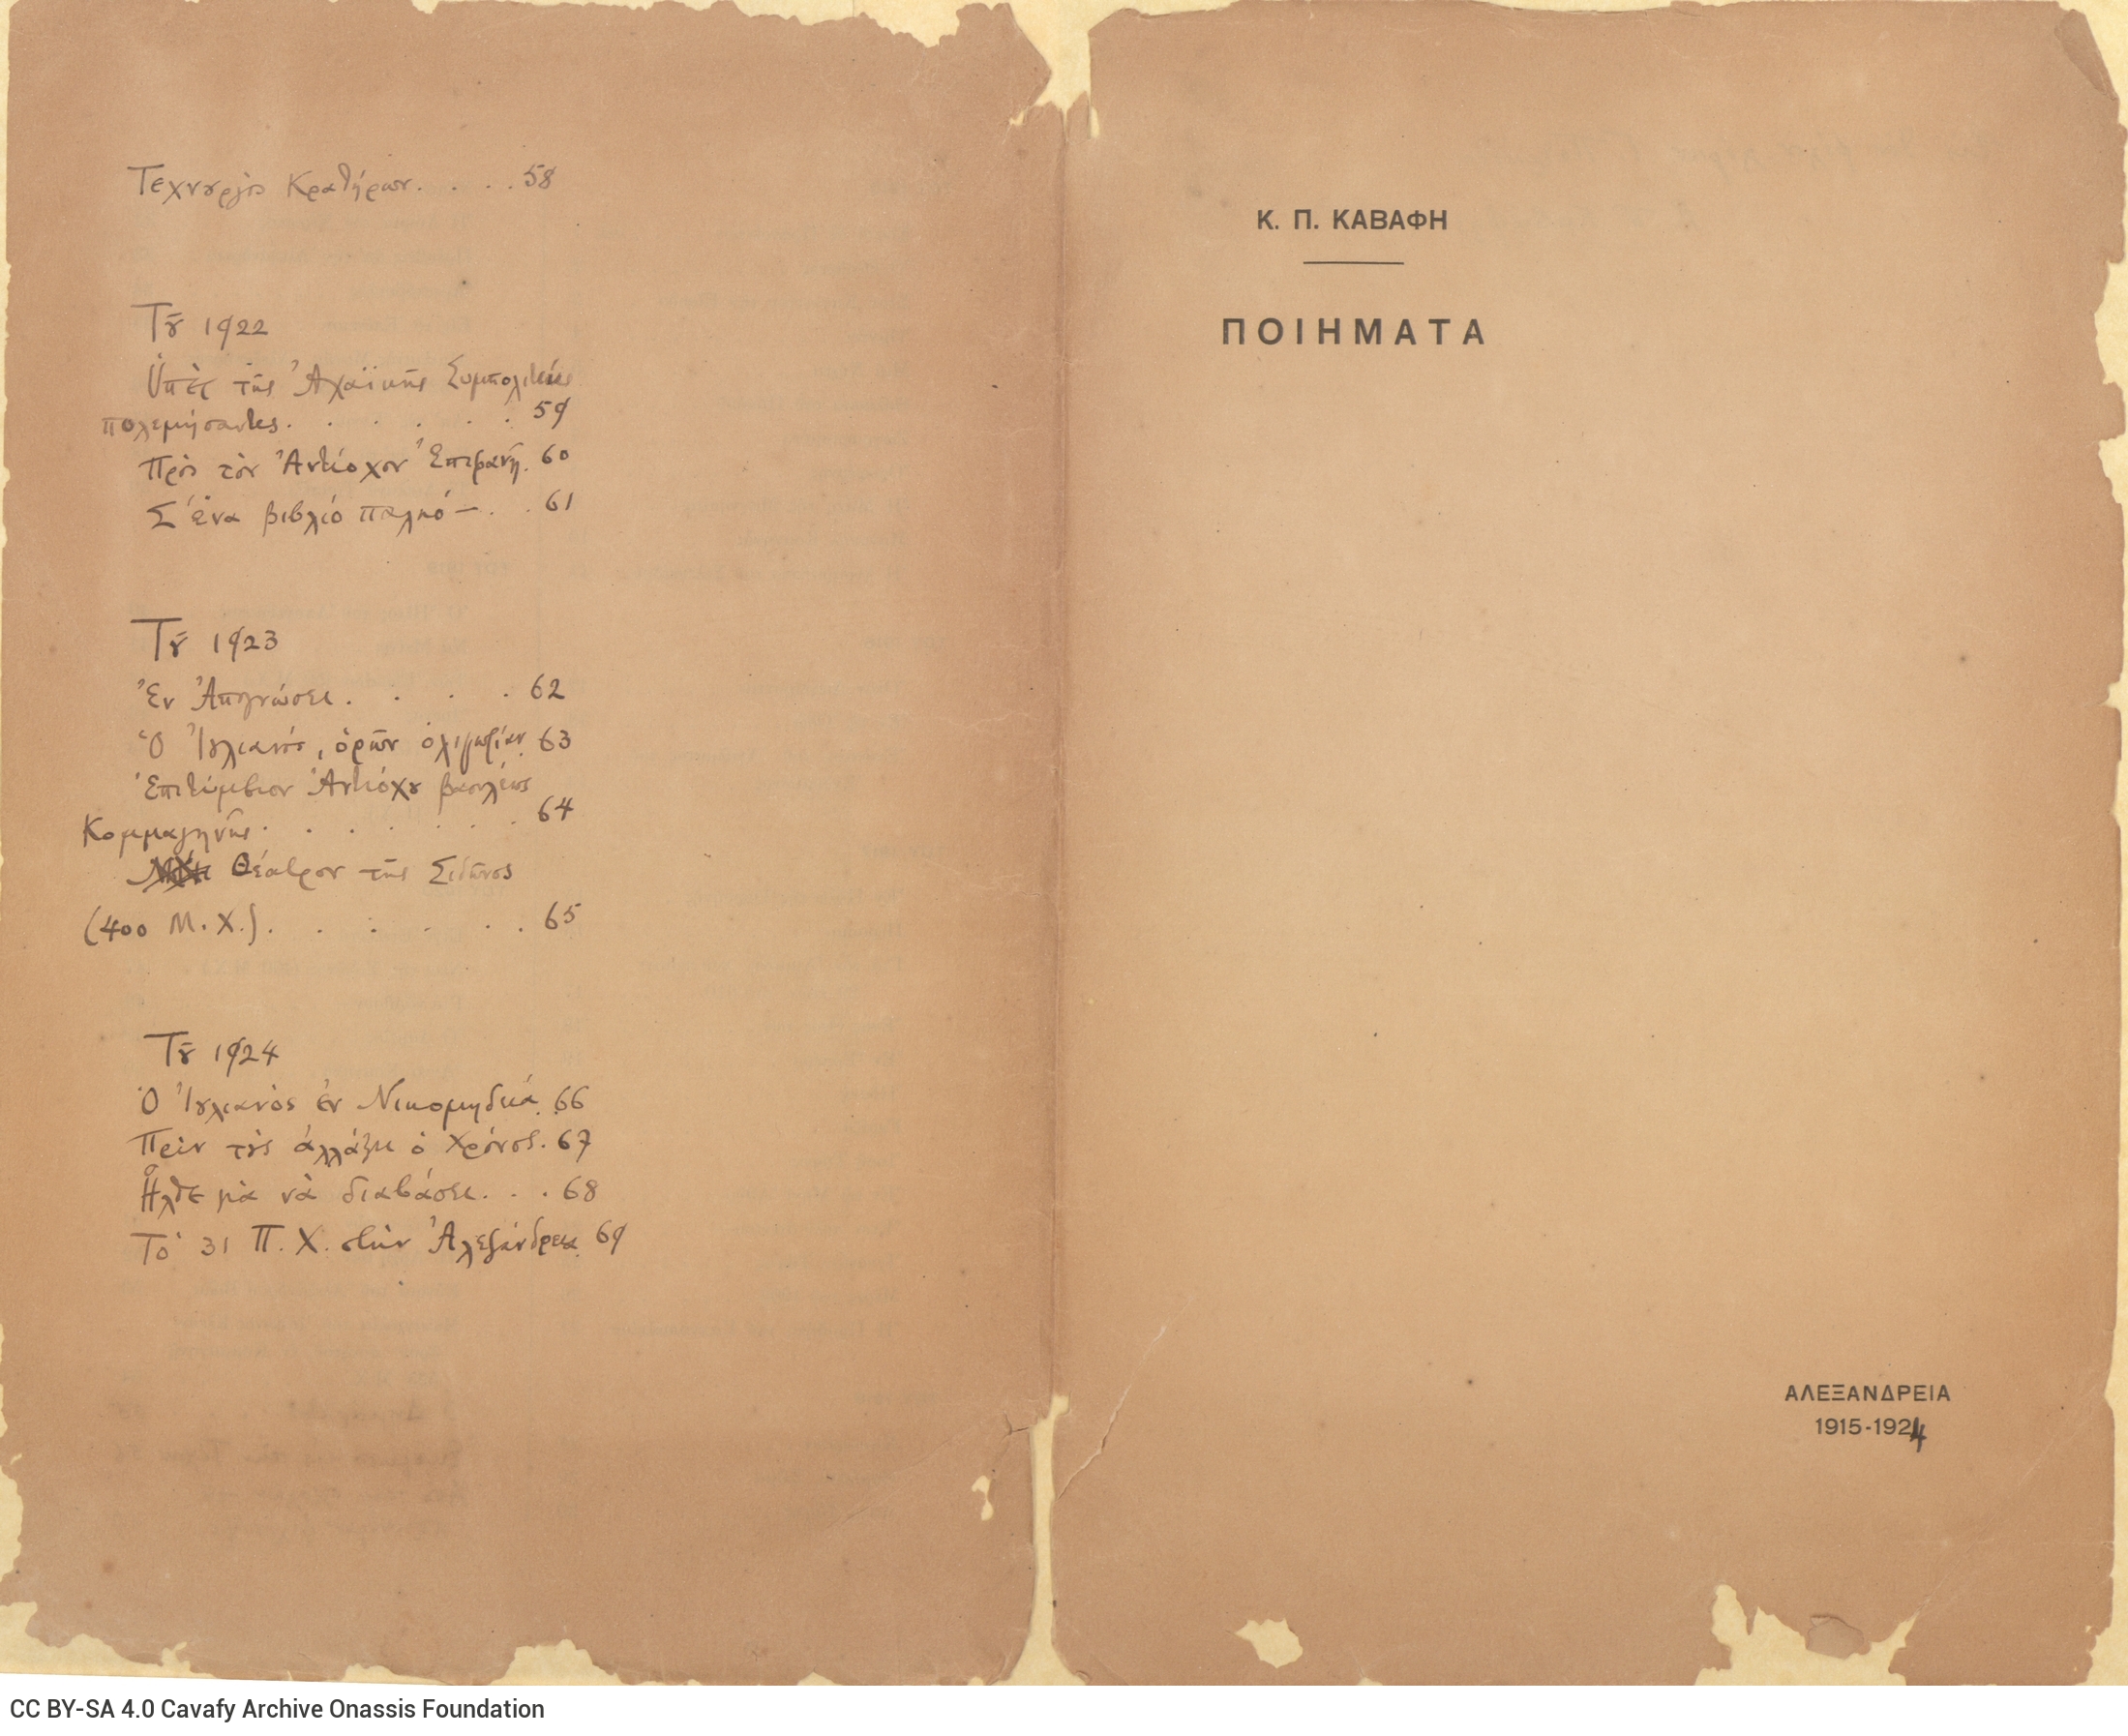 Τεχνουργὸς Κρατήρων. . . . 58
Τοῦ 1922
Ὑπὲρ τῆς Ἀχαϊκῆς Συμπολιτείας
πολεμήσαντες. . . . . . 59
Πρὸς τὸν Ἀντίοχον Ἐπιφανῆ. 60
Σ' ἕνα βιβλίο παληό —. . 61
Τοῦ 1923
Ἐν Ἀπογνώσει. . . . 62
Ὁ Ἰουλιανός, ὁρῶν ὀλιγωρίαν. 63
Ἐπιτύμβιον Ἀντιόχου βασιλέως
Κομμαγηνῆς. . . . . . . 64
Θέατρον τῆς Σιδῶνος
(400 Μ. Χ.). . . . . . 65
Τοῦ 1924
Ὁ Ἰουλιανὸς ἐν Νικομηδείᾳ. 66
Πρὶν τοὺς ἀλλάξει ὁ Χρόνος. 67
Ἦλθε γιὰ νὰ διαβάσει. . . 68
Τὸ 31 Π. Χ. στὴν Ἀλεξάνδρεια. 69
Κ. Π. ΚΑΒΑΦΗ
ΠΟΙΗΜΑΤΑ
ΑΛΕΞΑΝΔΡΕΙΑ
1915-1924
CC BY-SA 4.0 Cavafy Archive Onassis Foundation